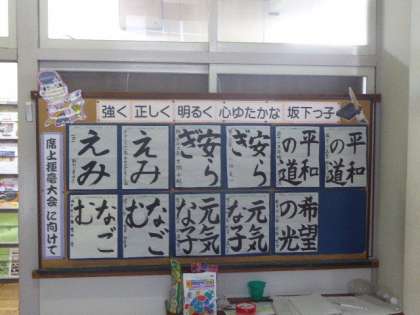 強く 正しく 明るく 心ゆたかな 坂下っ子
席上揮毫大会に向けて
えみ
えみ
安らぎ
安らぎ
平和の道
平和の道
なごむ
なごむ
元気な子
元気な子
希望の光